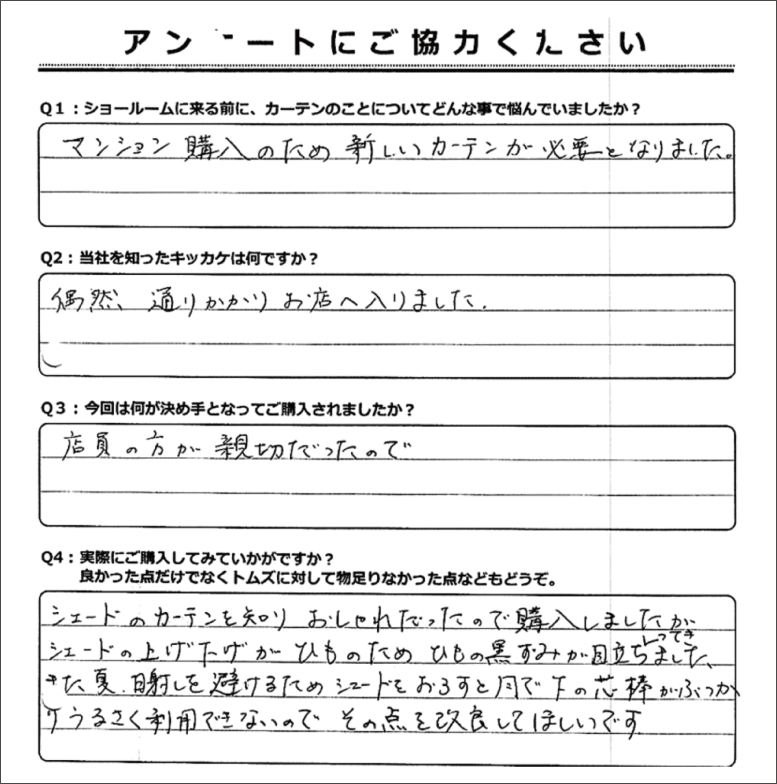 アンートにご協力ください
Q1：ショールームに来る前に、カーテンのことについてどんな事で悩んでいましたか？
マンション購入のため新しいカーテンが必要となりました。
Q2：当社を知ったキッカケは何ですか？
偶然、通りかかりお店へ入りました.
Q3：今回は何が決め手となってご購入されましたか？
店員の方が親切だったので
Q4：実際にご購入してみていかがですか？
良かった点だけでなくトムズに対して物足りなかった点などもどうぞ。
シェードのカーテンを知りおしゃれだったので購入しましたが
シェードの上げ下げがひものためひもの黒ずみが目立ち
ってき
ました、
また夏、日射しを避けるためシェードをおろすと風で下の芯棒がぶつか
りうるさく利用できないのでその点を改良してほしいです